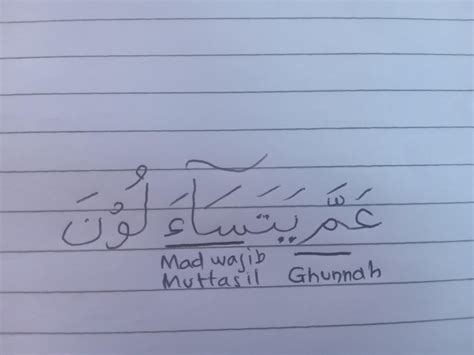 عَمَّ يَتَسَآءَلُوْنَ
Mad wajib Ghunnah
Muttasil